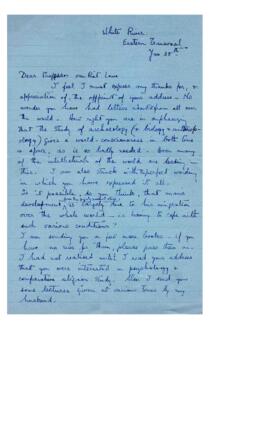 White River
Eastern Transvaal
Dear Professor van Riet Lowe
I feel I must express my thanks for, &
appreciation of the offprint of your address – No
wonder you have had letters about it from all over
the world – How right you are in emphasizing
that the study of archaeology (& biology & anthropo-
logy) gives a world-consciousness in both time
& space, as is so badly needed – Even many
of the intellectuals of the world are lacking
this. I am also struck with perfect wording
in which you have expressed it all.
Is it possible, do you think, that man's
development is largely due to his migration
over the whole world – & having to cope with
such various conditions?
I am sending you a few more books – if you
have no use for them, please pass them on –
I had not realized until I read your address
that you were interested in psychology &
comparative religion study. Also I send you
some lectures given at various times by my
husband.